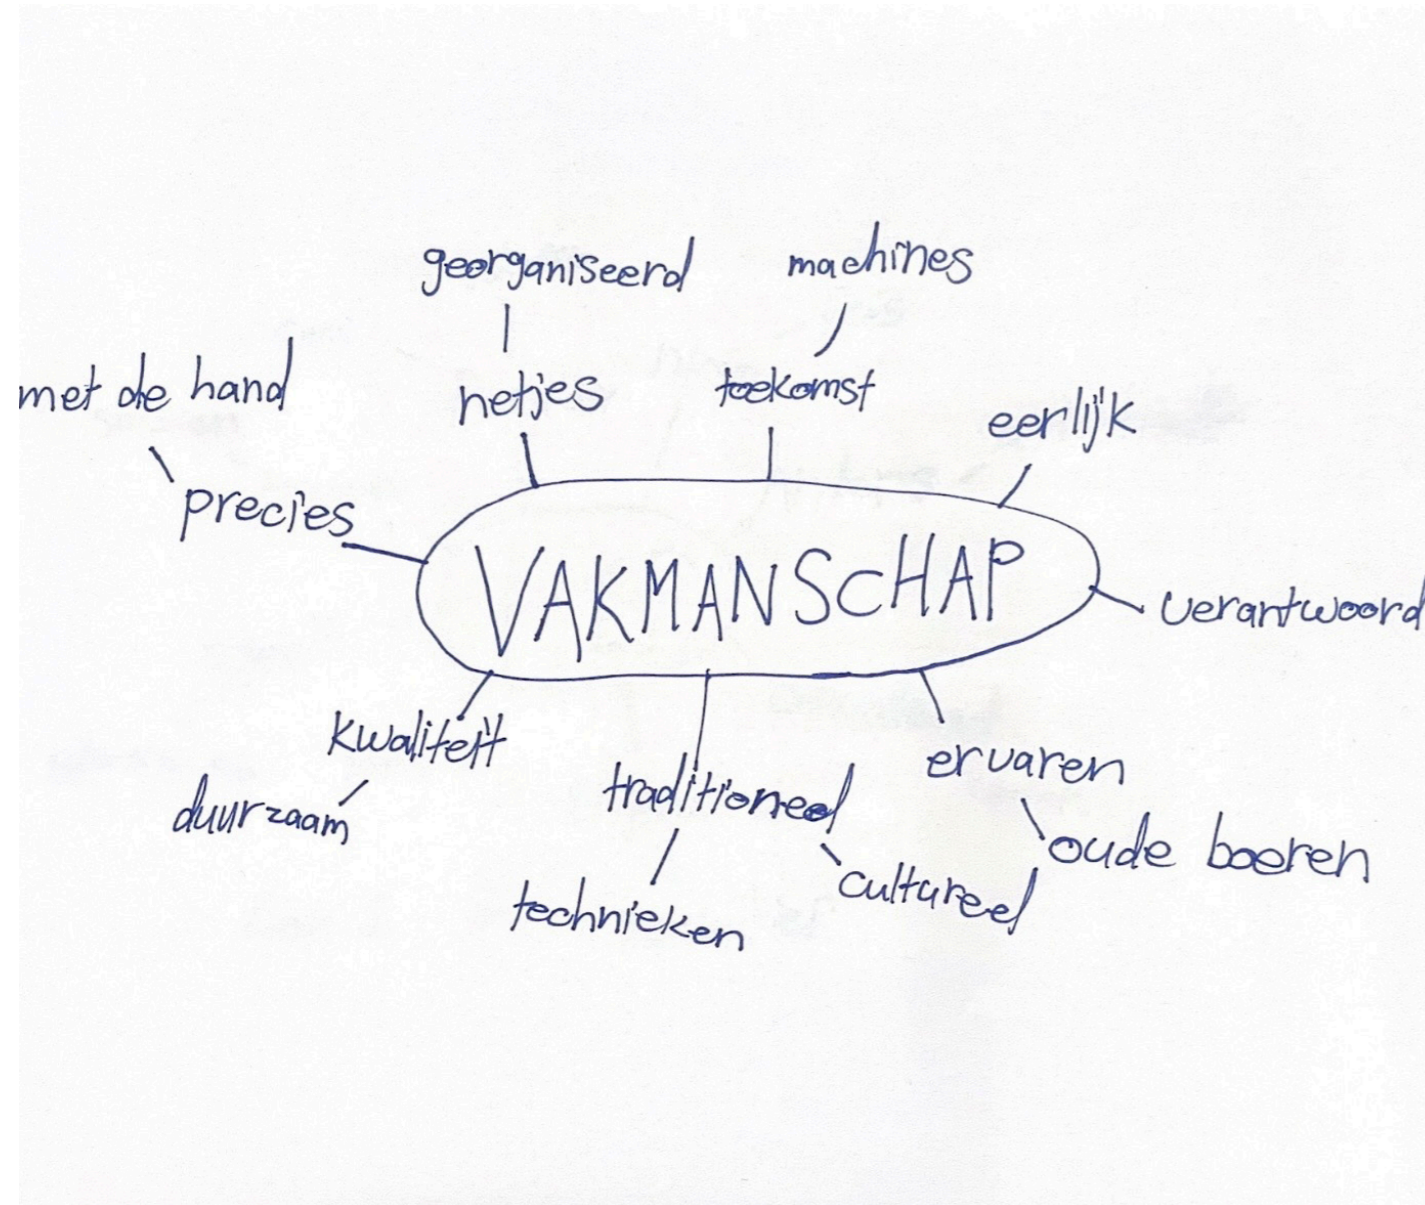 georganiseerd
machines
met de hand
netjes
toekomst
eerlijk
precies
VAKMANSCHAP
verantwoord
kwaliteit
duurzaam
traditioneel
ervaren
oude boeren
cultureel
technieken